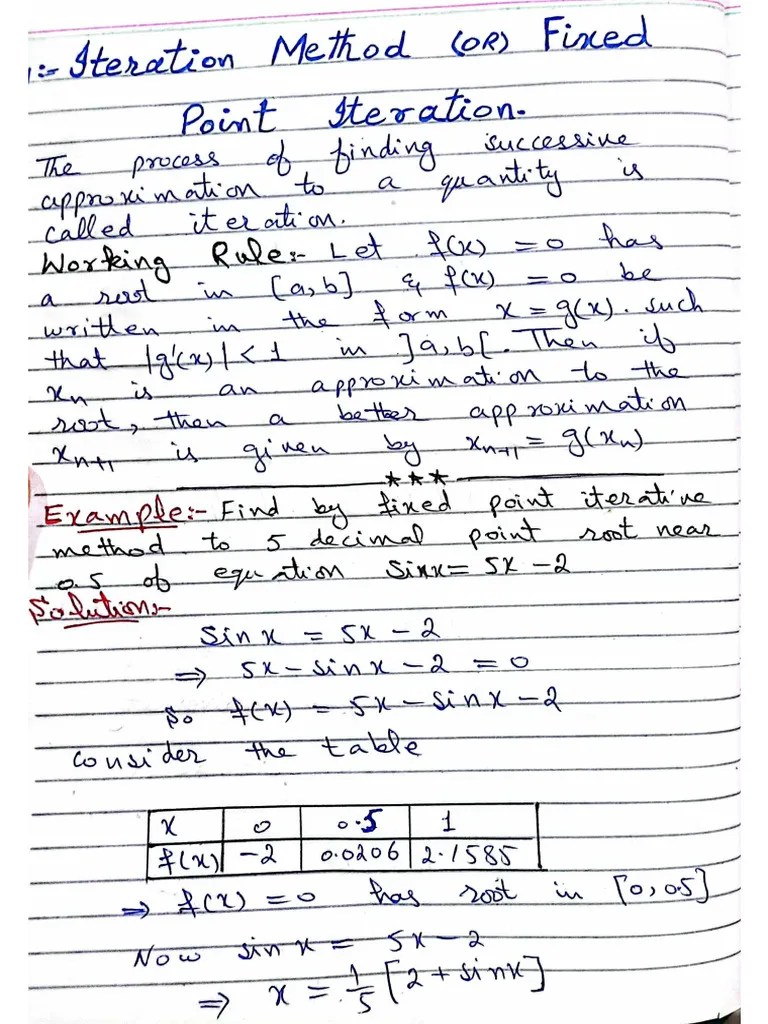 :- Iteration Method (OR) Fixed
Point Iteration.
The process of finding successive
approximation to a quantity is
called iteration.
Working Rule:- Let f(x) = 0 has
a root in [a,b] & f(x) = 0 be
written in the form x = g(x). such
that |g'(x)| < 1 in ]a,b[. Then if
xₙ is an approximation to the
root, then a better approximation
xₙ₊₁ is given by xₙ₊₁ = g(xₙ)
★★★
Example:- Find by fixed point iterative
method to 5 decimal point root near
0.5 of equation Sinx = 5x - 2
Solution:-
Sin x = 5x - 2
⇒ 5x - sin x - 2 = 0
So f(x) = 5x - sin x - 2
Consider the table
x 0 0.5 1
f(x) -2 0.0206 2.1585
⇒ f(x) = 0 has root in [0, 0.5]
Now sin x = 5x - 2
⇒ x = 1/5 [2 + sin x]